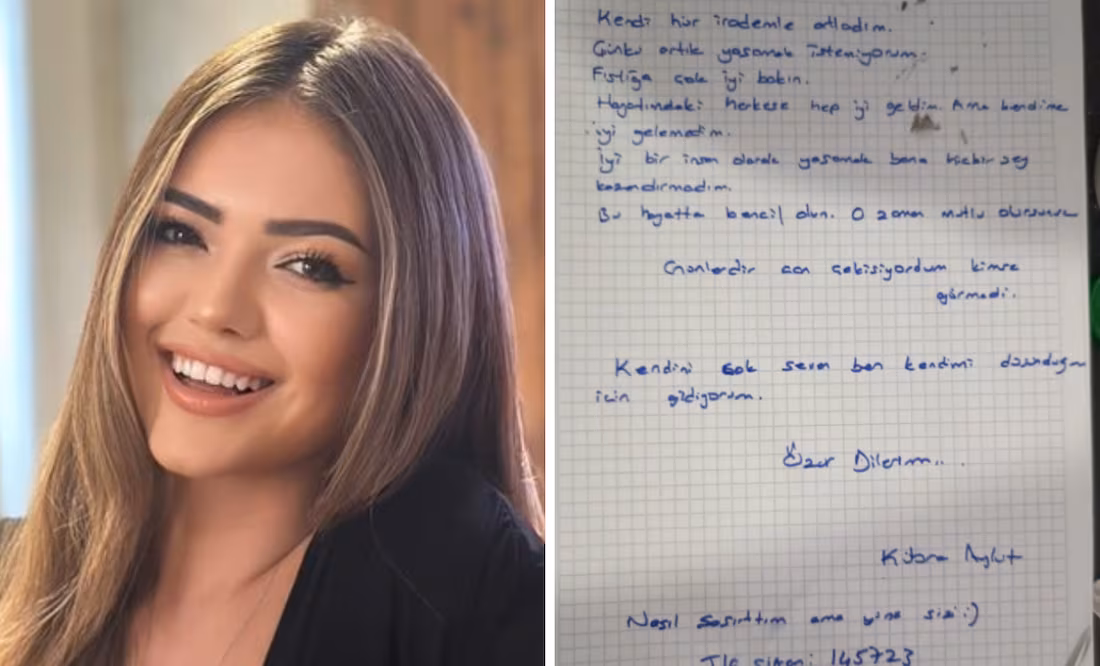 Kendi hür irademle atladım.
Çünkü artık yaşamak istemiyorum.
Fıstığa çok iyi bakın.
Hayatımdaki herkese hep iyi geldim. Ama kendime
iyi gelemedim.
İyi bir insan olarak yaşamak bana hiçbir şey
kazandırmadım.
Bu hayatta bencil olun. O zaman mutlu olursunuz
Günlerdir can çekişiyordum kimse
görmedi.
Kendimi çok seven ben kendimi düşündüğüm
için gidiyorum.
Özür Dilerim...
Kübra Aykut
Nasıl şaşırttım ama yine sizi :)
Tlf şifrem: 145723